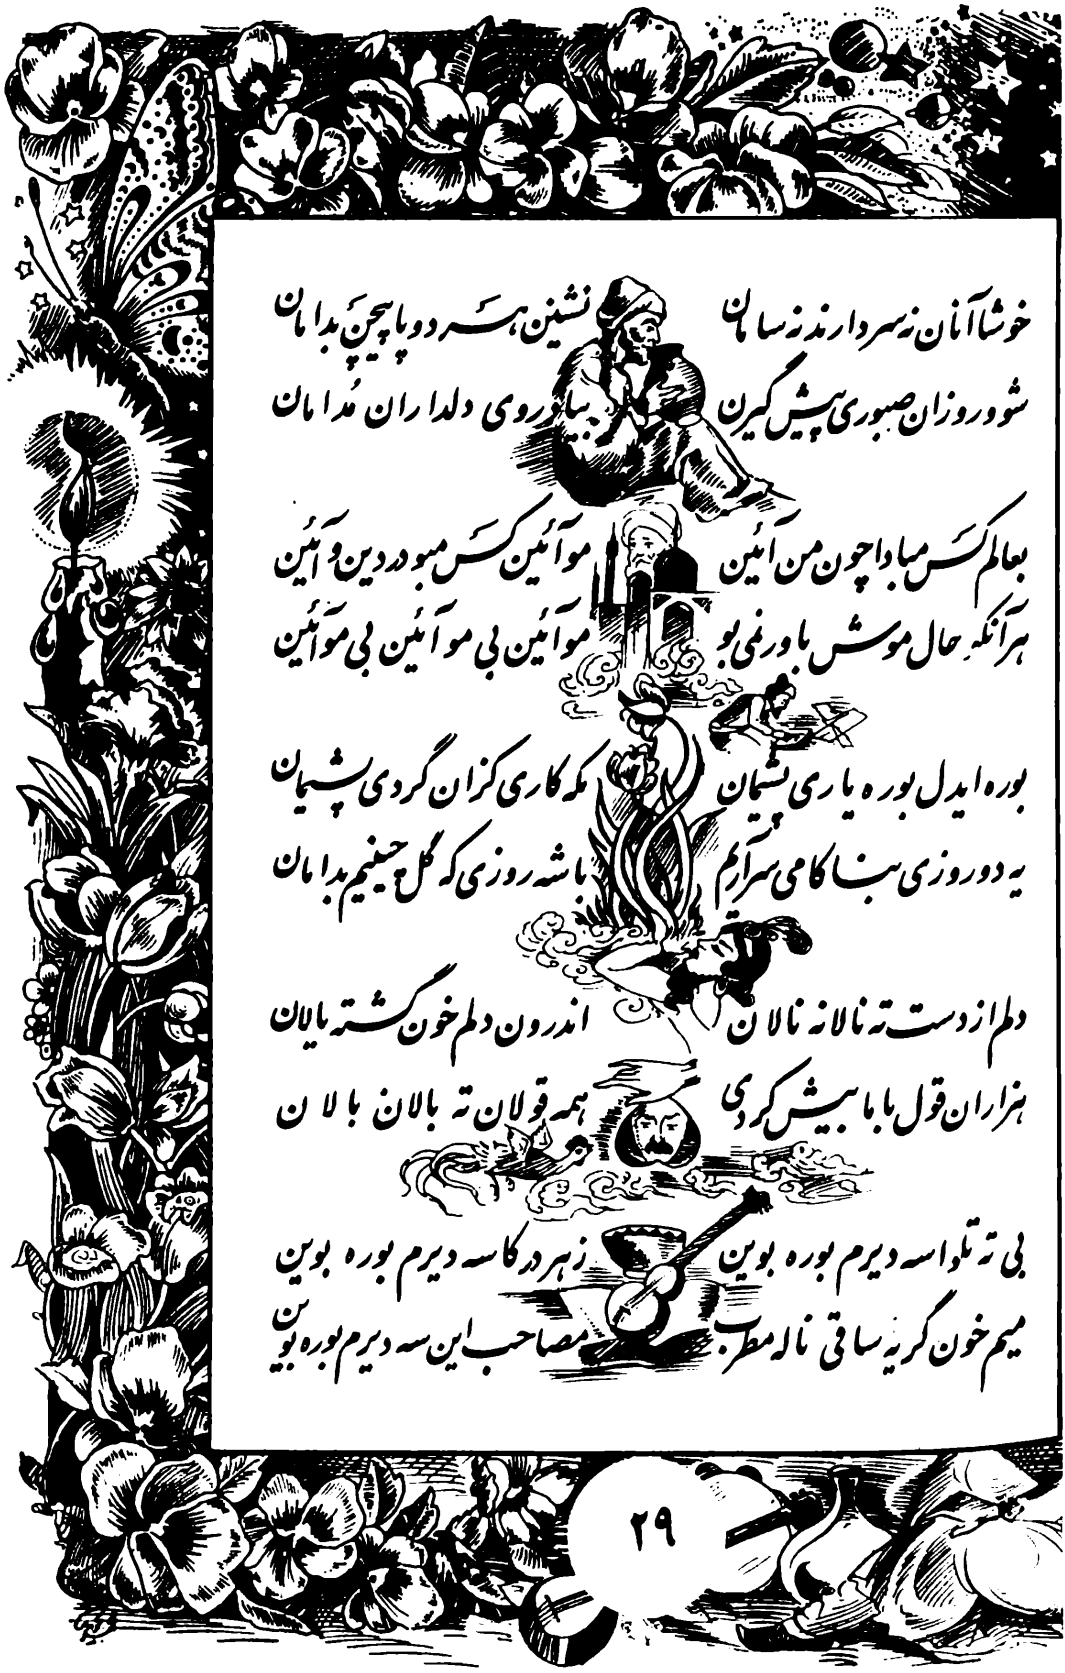 خوشا آنان نه سر دارند نه سامان نشینن هر دو پا پیچن بدامان
شو و روزان صبوری پیش گیرن بیاد روی دلداران مُدامان
بعالم کس مبادا چون من آئین مو آئین کس مبو در دین و آئین
هر آنکه حال موش باور نمی بو مو آئین بی مو آئین بی مو آئین
بوره ایدل بوره یاری پشیمان مکه کاری کزان گردی پشیمان
یه دو روزی بناکامی سرآریم باشه روزی که گل چینیم بدامان
دلم از دست ته نالانه نالان اندرون دلم خون گشته پالان
هزاران قول با ما بیش کردی همه قولان ته بالان بالان
بی ته تلواسه دیرم بوره بوین زهر در کاسه دیرم بوره بوین
میم خون گریه ساقی ناله مطرب مصاحب این سه دیرم بوره بوین
۲۹